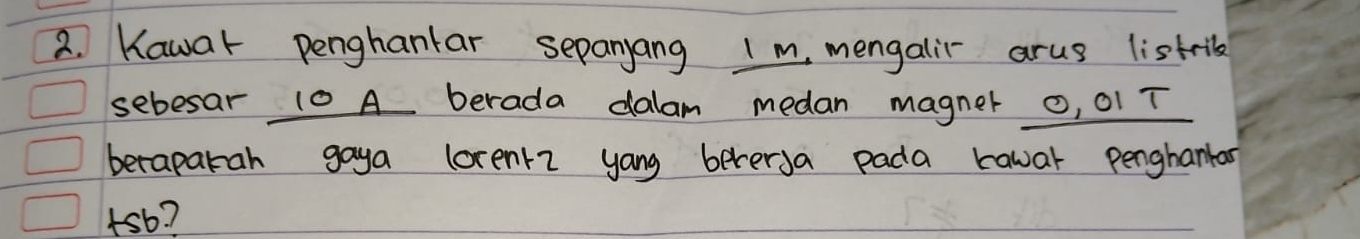 2. Kawat penghantar sepanjang 1 m, mengalir arus listrik
sebesar 10 A berada dalam medan magnet 0,01 T
berapakah gaya lorentz yang bekerja pada kawat penghantar
tsb?